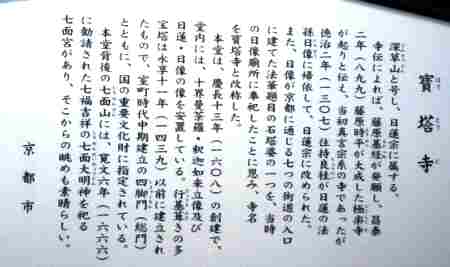 寶塔寺
深草山と号し、日蓮宗に属する。
寺伝によれば、藤原基経が発願し、昌泰
二年（八九九）藤原時平が大成した極楽寺
が起りと伝え、当初真言宗系の寺であったが
徳治二年（一三〇七）住持良桂が日蓮の法
孫日像に帰依して、日蓮宗に改められた。
また、日像が京都に通じる七つの街道の入口
に建てた法華題目の石塔婆の一つを、当時
の日像廟所に奉祀したことに因み、寺名
を寳塔寺と改称した。
本堂は、慶長十三年（一六〇八）の創建で、
堂内には、十界曼荼羅・釈迦如来立像及び
日蓮・日像の像を安置している。行基葺きの多
宝塔は永享十一年（一四三九）以前に建立され
たもので、室町時代中期建立の四脚門（総門）
とともに、国の重要文化財に指定されている。
本堂背後の七面山には、寛文六年（一六六六）
に勧請された七福吉祥の七面大明神を祀る
七面宮があり、そこからの眺めも素晴らしい。
京都市